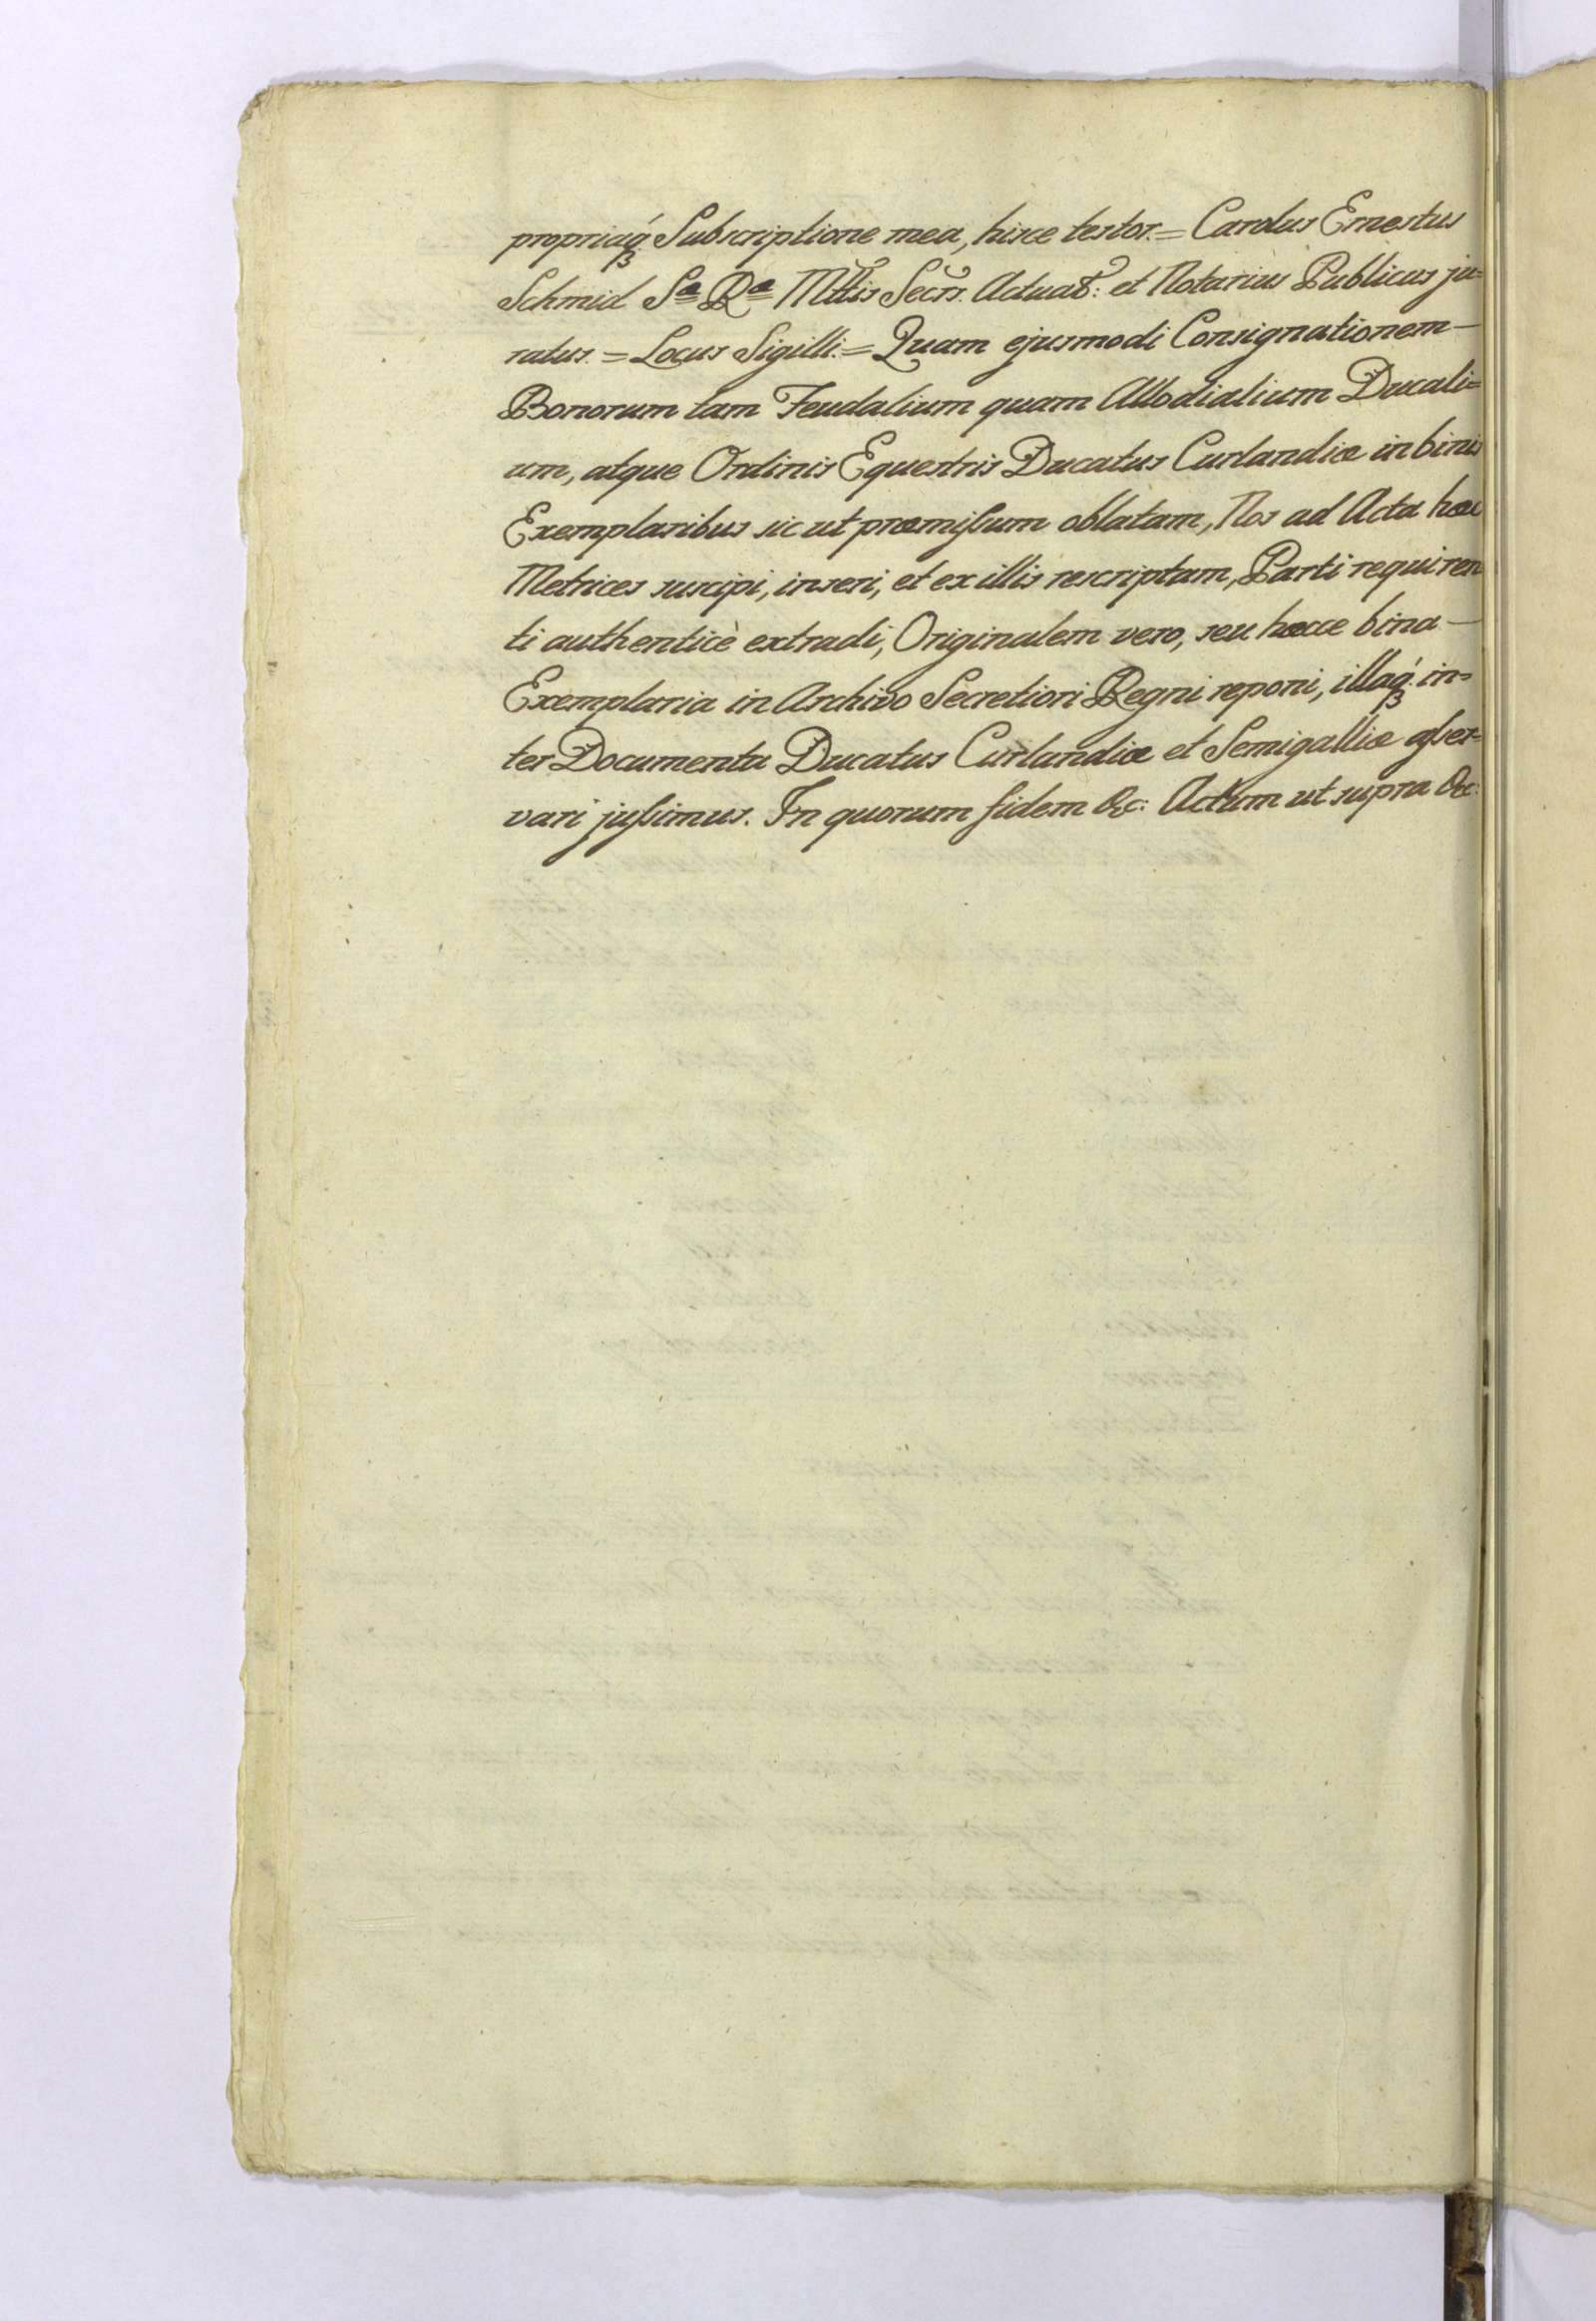 propriaq́ꝫ Subscriptione mea, hisce testor.= Carolus Ernestus
Schmid Sæ Ræ Mttis Secrs. Actuar: et Notarius Publicus ju=
ratus.= Locus Sigilli.= Quam ejusmodi Consignationem—
Bonorum tam Feudalium quam Allodialium Ducali=
um, atque Ordinis Equestris Ducatus Curlandiæ in binis
Exemplaribus sic ut præmiſsum oblatam, Nos ad Acta hæc
Metrices suscipi, inseri, et ex illis rescriptam, Parti requiren
ti authenticè extradi, Originalem vero, seu hæcce bina—
Exemplaria in Archivo Secretiori Regni reponi, illaq́ꝫ in=
ter Documenta Ducatus Curlandiæ et Semigalliæ aſser=
vari juſsimus. In quorum fidem &c: Actum ut supra &c: